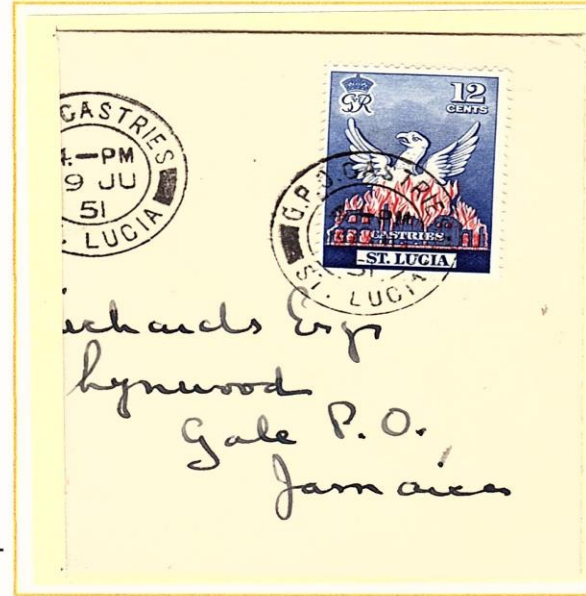 CASTRIES
4.—PM
9 JU
51
LUCIA
GR
12
CENTS
G.P.O. CASTRIE
—PM
51
ST. LUCIA
CASTRIES
ST. LUCIA
ichards Esqr
lynwood
Gale P.O.
Jamaica